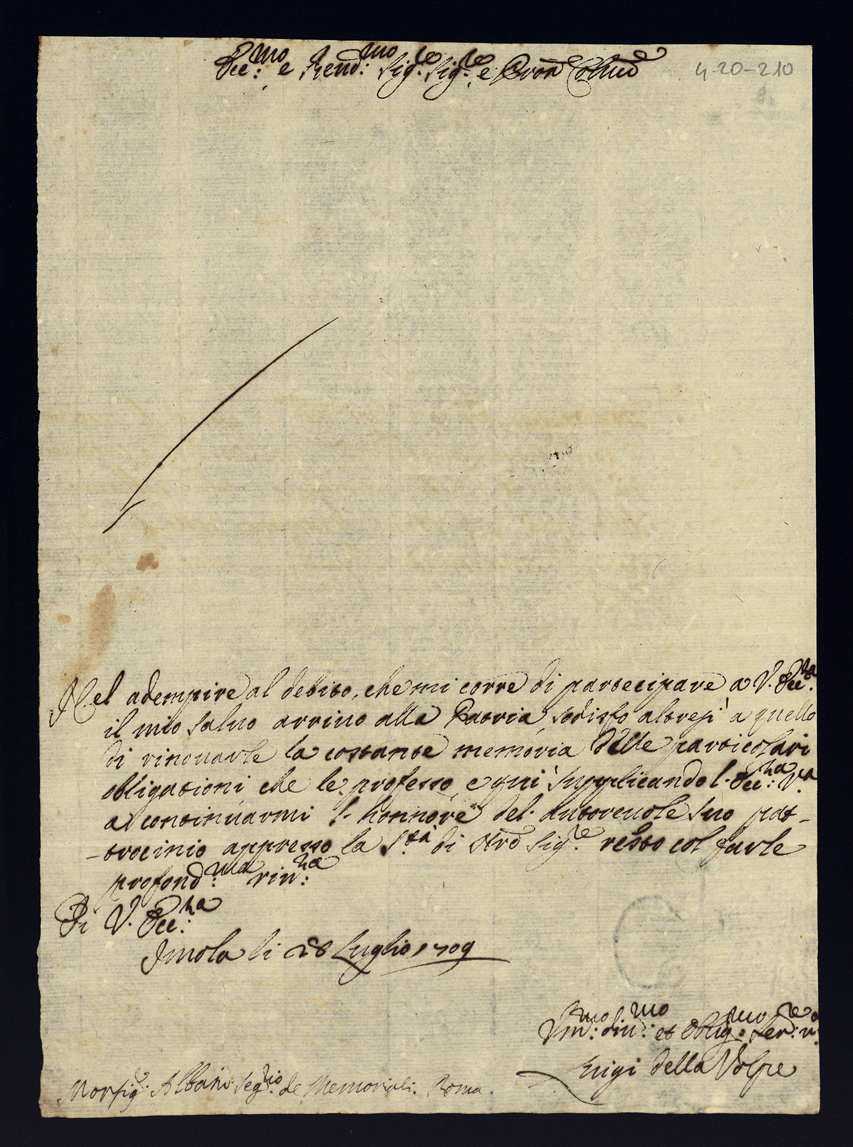 Ecc:mo e Rend:mo Sig:re Sig:re e Pron Colmo
4-20-210
Nel adempire al debito, che mi corre di partecipare a V. Ecc:za
il mio salvo arrivo alla Patria, sodisfo altresi' a quello
di rinouarle la costante memoria delle particolari
obligationi che le professo, e qui' supplicando l'Ecc:za V.a
a continuarmi l'honnore del autoreuole suo pat-
-trocinio appresso la S.tà di Nro Sig.re resto col farle
profond:ma riu:za
Di V. Ecc:za
Imola li 28 Luglio 1709
Vm:mo diu:mo et oblig:mo Ser:re
Luigi della Volpe
Monsig:r Albani Seg:rio de Memoriali: Roma.